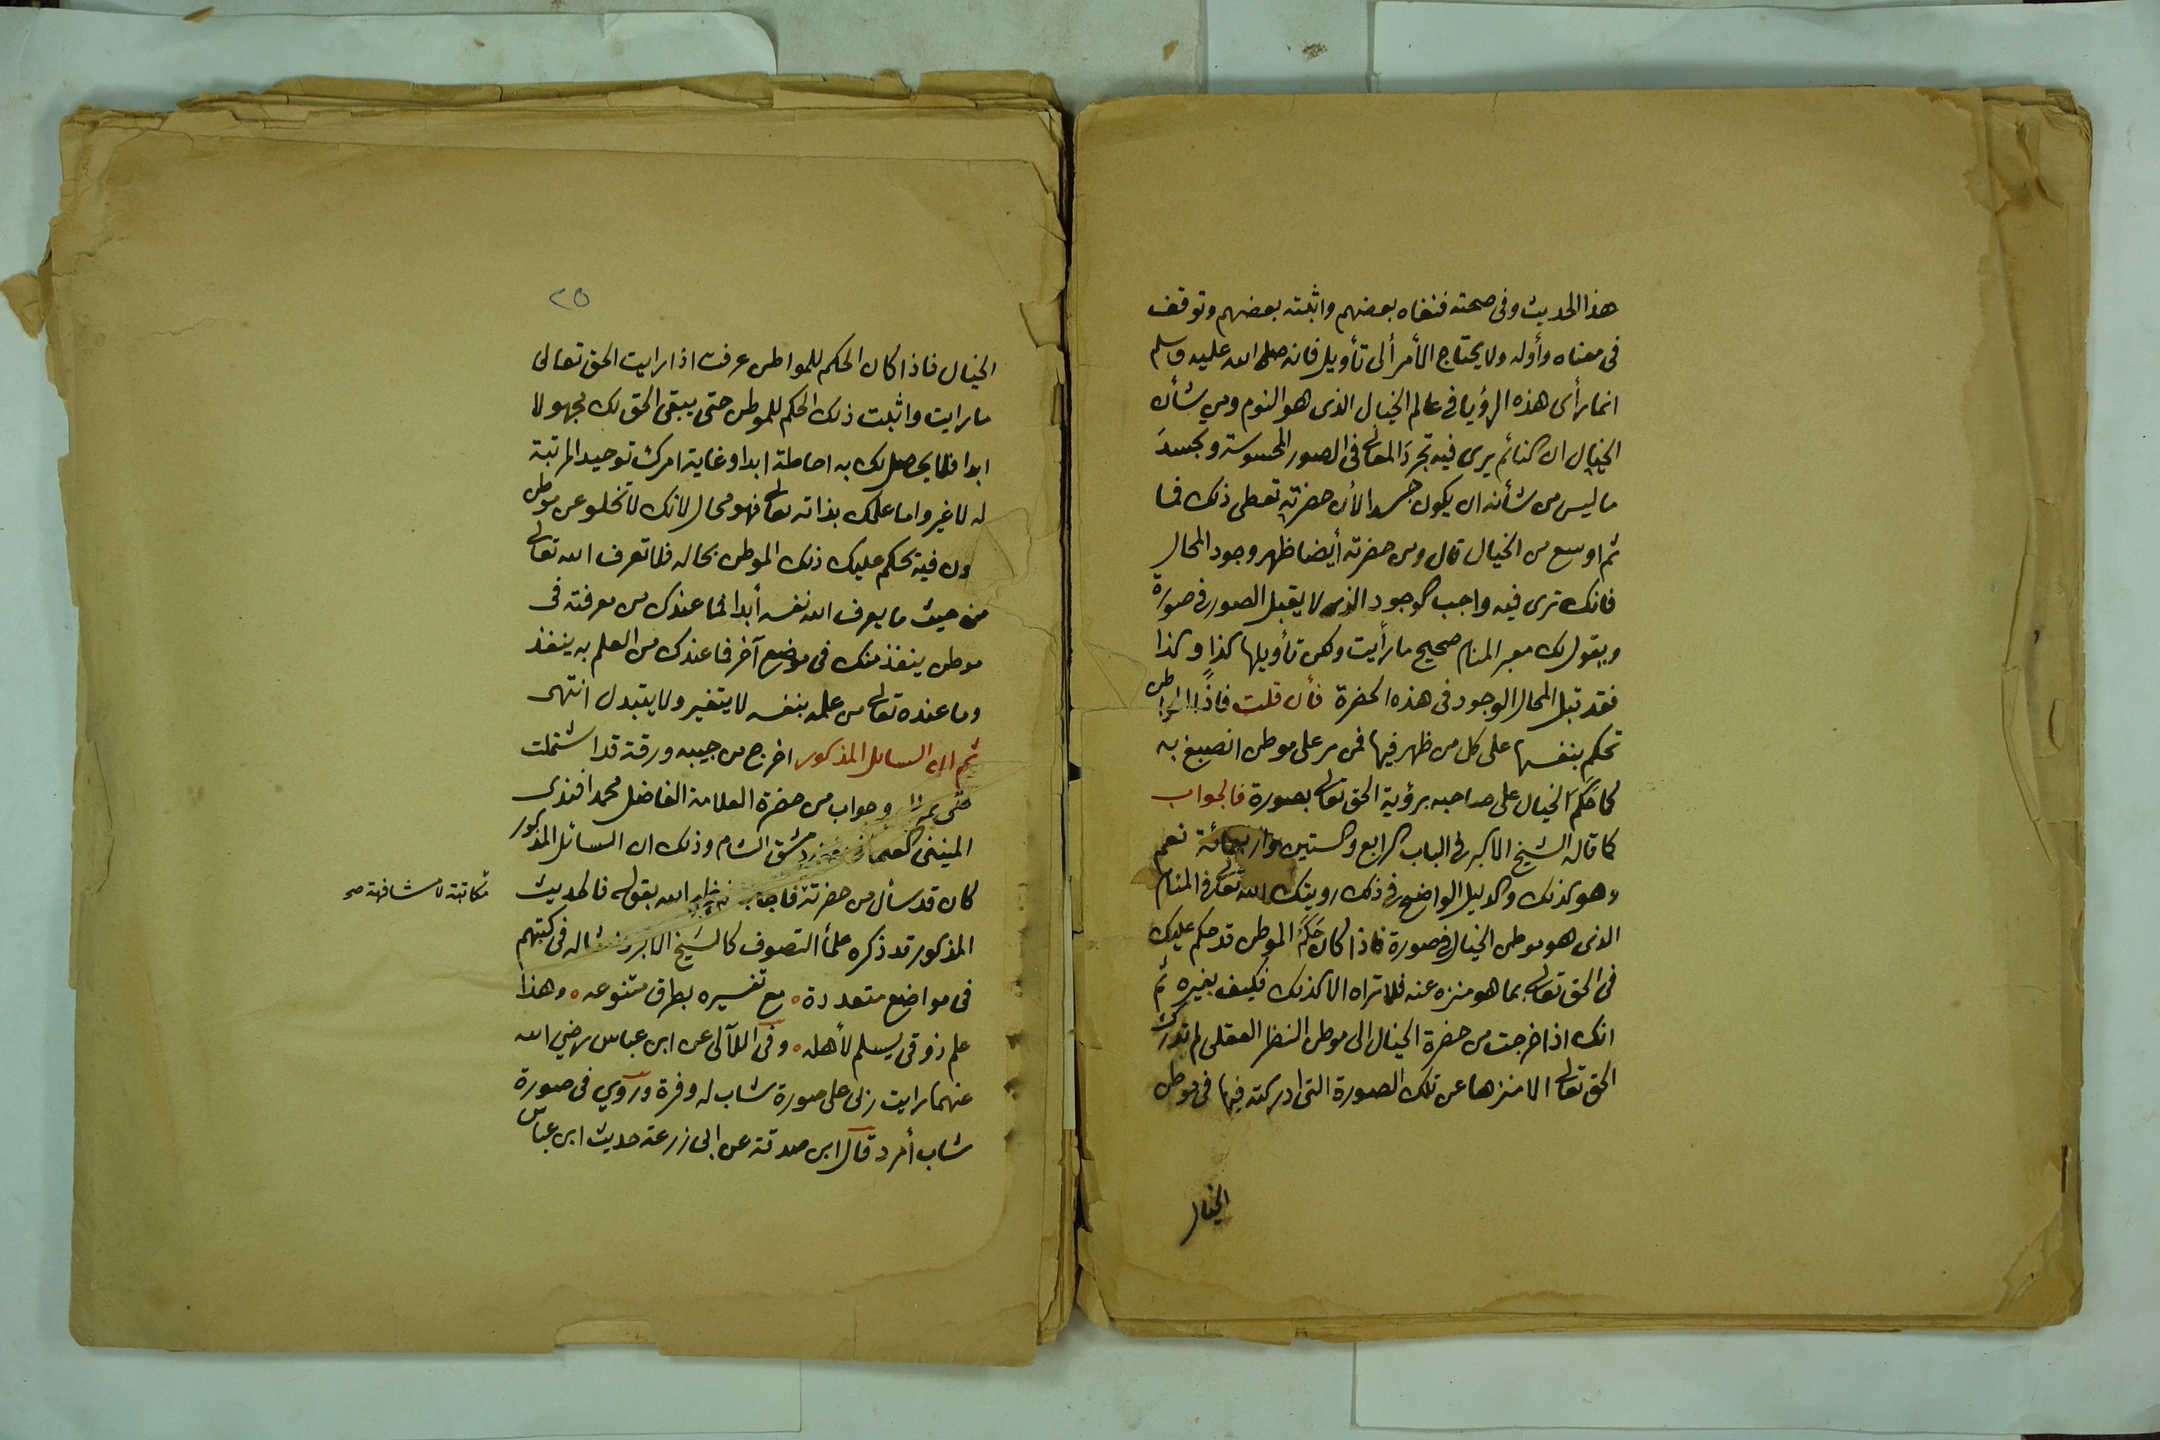 هذا الحديث وفى صحته فنفاه بعضهم واثبته بعضهم وتوقف
فى معناه وأوله ولا يحتاج الأمر ألى تأويل فانه صلى الله عليه وسلم
انما رأى هذه الرؤيا فى عالم الخيال الذى هو النوم ومن شأن
الخيال ان النائم يرى فيه تجرد المعانى فى الصور المحسوسة وتجسد
ما ليس من شأنه ان يكون جسدا لأن حضرته تعطى ذلك فما
ثم اوسع من الخيال قال ومن حضرته أيضا ظهر وجود المحال
فانك ترى فيه واجب الوجود الذى لا يقبل الصور فى صورة
ويقول لك معبر المنام صحيح ما رأيت ولكن تأويلها كذا وكذا
فقد قبل المحال الوجود فى هذه الحضرة فأن قلت فاذًا المواطن
تحكم بنفسها على كل من ظهر فيها فمن مر على موطن انصبغ به
كما حَكَمَ الخيال على صاحبه برؤية الحق تعالى بصورة فالجواب
كما قاله الشيخ الاكبر فى الباب الرابع والستين واربعمائة نعم
وهو كذلك والدليل الواضح فى ذلك رويتك الله تعالى فى المنام
الذى هو موطن الخيال فى صورة فاذا كان حَكَمَ الموطن قد حكم عليك
فى الحق تعالى بما هو منزه عنه فلا تراه الا كذلك فكيف بغيره ثم
انك اذا خرجت من حضرة الخيال الى موطن النظر العقلى لم تدرك
الحق تعالى الا منزها عن تلك الصورة التى ادركته فيها فى موطن
الخيال
٢٥
الخيال فاذا كان الحكم للمواطن عرفت اذا رايت الحق تعالى
ما رايت واثبت ذلك الحكم للموطن حتى يبقى الحق لك مجهولا
ابدا فلا يحصل لك به احاطة ابدا وغاية امرك توحيد المرتبة
له لا غير واما علمك بذاته تعالى فهو محال لانك لا تخلو عن موطن
ون فيه يحكم عليك ذلك الموطن بحاله فلا تعرف الله تعالى
من حيث ما يعرف الله نفسه أبدا فما عندك من معرفته فى
موطن ينفذ منك فى موضع آخر فما عندك من العلم به ينفذ
وما عنده تعالى من علمه بنفسه لا يتغير ولا يتبدل انتهى
ثم ان السائل المذكور اخرج من جيبه ورقة قد اشتملت
على وجواب من حضرة العلامة الفاضل محمد افندى
المينى دمشق الشام وذلك ان السائل المذكور
كان قد سأل من حضرته فاجاب الله بقوله فالحديث
مكاتبة لا مشافهة صح
المذكور قد ذكره علمأ التصوف كالشيخ الاكبر فى كتبهم
فى مواضع متعددة ه مع تفسيره بطرق متنوعه ه وهذا
علم ذوقى يسلم لأهله ه وفى اللآلى عن ابن عباس رضي الله
عنهما رايت ربى على صورة شاب له وفرة وروي فى صورة
شاب أمرد قال ابن صدقة عن ابى زرعة حديث ابن عباس